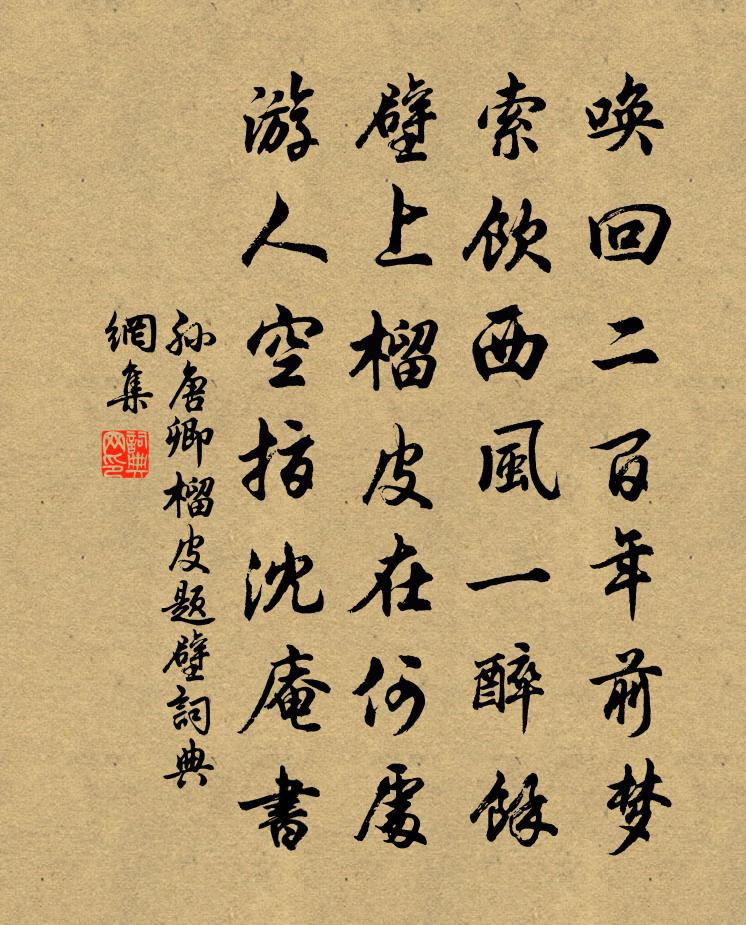 唤回二百年前梦
索饮西風一醉餘
壁上榴皮在何處
游人空指沈庵書
孙唐卿榴皮题壁詞典
網集
詞典网印